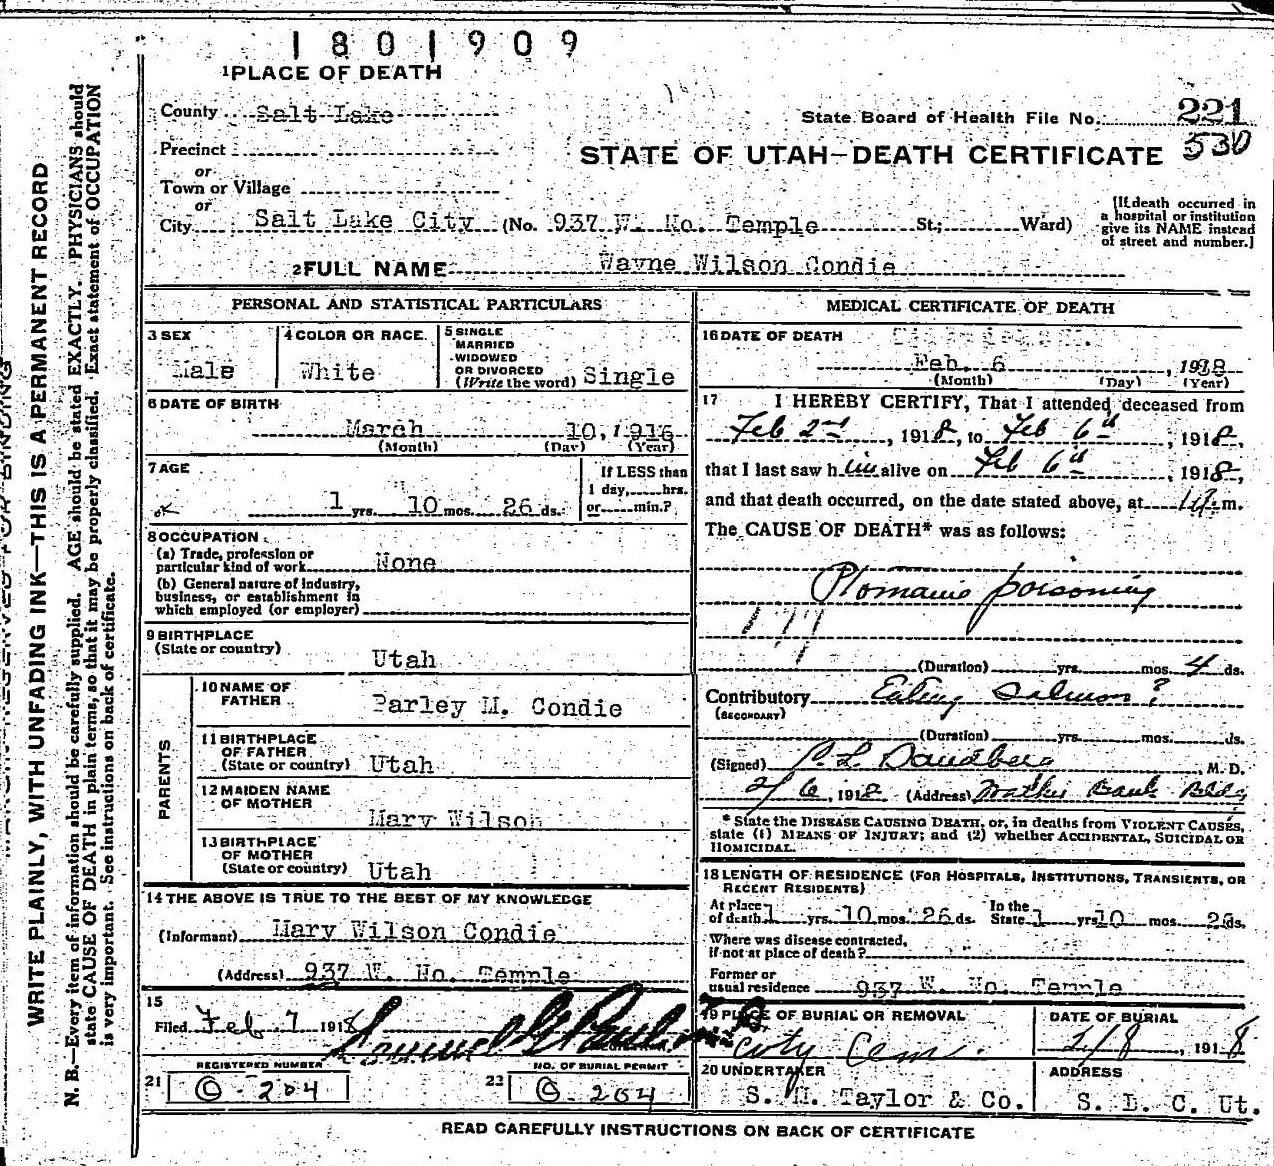 1801909
1 PLACE OF DEATH
County Salt Lake
State Board of Health File No. 221
530
Precinct
or
Town or Village
or
STATE OF UTAH—DEATH CERTIFICATE
City Salt Lake City (No. 937 W. No. Temple St.; Ward)
[If death occurred in
a hospital or institution
give its NAME instead
of street and number.]
2 FULL NAME Wayne Wilson Condie
PERSONAL AND STATISTICAL PARTICULARS
3 SEX
Male
4 COLOR OR RACE
White
5 SINGLE
MARRIED
WIDOWED
OR DIVORCED
(Write the word) Single
6 DATE OF BIRTH
March 10, 1916
(Month) (Day) (Year)
7 AGE
ok 1 yrs. 10 mos. 26 ds.
If LESS than
1 day, hrs.
or min.?
8 OCCUPATION
(a) Trade, profession or
particular kind of work None
(b) General nature of industry,
business, or establishment in
which employed (or employer)
9 BIRTHPLACE
(State or country) Utah
PARENTS
10 NAME OF
FATHER Parley M. Condie
11 BIRTHPLACE
OF FATHER
(State or country) Utah
12 MAIDEN NAME
OF MOTHER
Mary Wilson
13 BIRTHPLACE
OF MOTHER
(State or country) Utah
14 THE ABOVE IS TRUE TO THE BEST OF MY KNOWLEDGE
(Informant) Mary Wilson Condie
(Address) 937 W. No. Temple
15
Filed Feb 7 1918
REGISTERED NUMBER
21 O-204
NO. OF BURIAL PERMIT
22 O-204
MEDICAL CERTIFICATE OF DEATH
16 DATE OF DEATH
Feb. 6, 1918
(Month) (Day) (Year)
17 I HEREBY CERTIFY, That I attended deceased from
Feb 2nd, 1918, to Feb 6th, 1918,
that I last saw him alive on Feb 6th, 1918,
and that death occurred, on the date stated above, at m.
The CAUSE OF DEATH* was as follows:
Ptomaine poisoning
177
(Duration) yrs. mos. 4 ds.
Contributory Eating Salmon?
(SECONDARY)
(Duration) yrs. mos. ds.
(Signed) M. D.
2/6, 1918 (Address) Bank Bldg
* State the DISEASE CAUSING DEATH, or, in deaths from VIOLENT CAUSES,
state (1) MEANS OF INJURY; and (2) whether ACCIDENTAL, SUICIDAL OR
HOMICIDAL.
18 LENGTH OF RESIDENCE (FOR HOSPITALS, INSTITUTIONS, TRANSIENTS, OR
RECENT RESIDENTS)
At place
of death 1 yrs. 10 mos. 26 ds.
In the
State 1 yrs. 10 mos. 26 ds.
Where was disease contracted,
if not at place of death?
Former or
usual residence 937 W. No. Temple
19 PLACE OF BURIAL OR REMOVAL
City Cem.
DATE OF BURIAL
2/8, 1918
20 UNDERTAKER
S. M. Taylor & Co.
ADDRESS
S. L. C. Ut.
READ CAREFULLY INSTRUCTIONS ON BACK OF CERTIFICATE
WRITE PLAINLY, WITH UNFADING INK—THIS IS A PERMANENT RECORD
N. B.—Every item of information should be carefully supplied. AGE should be stated EXACTLY. PHYSICIANS should
state CAUSE OF DEATH in plain terms, so that it may be properly classified. Exact statement of OCCUPATION
is very important. See instructions on back of certificate.